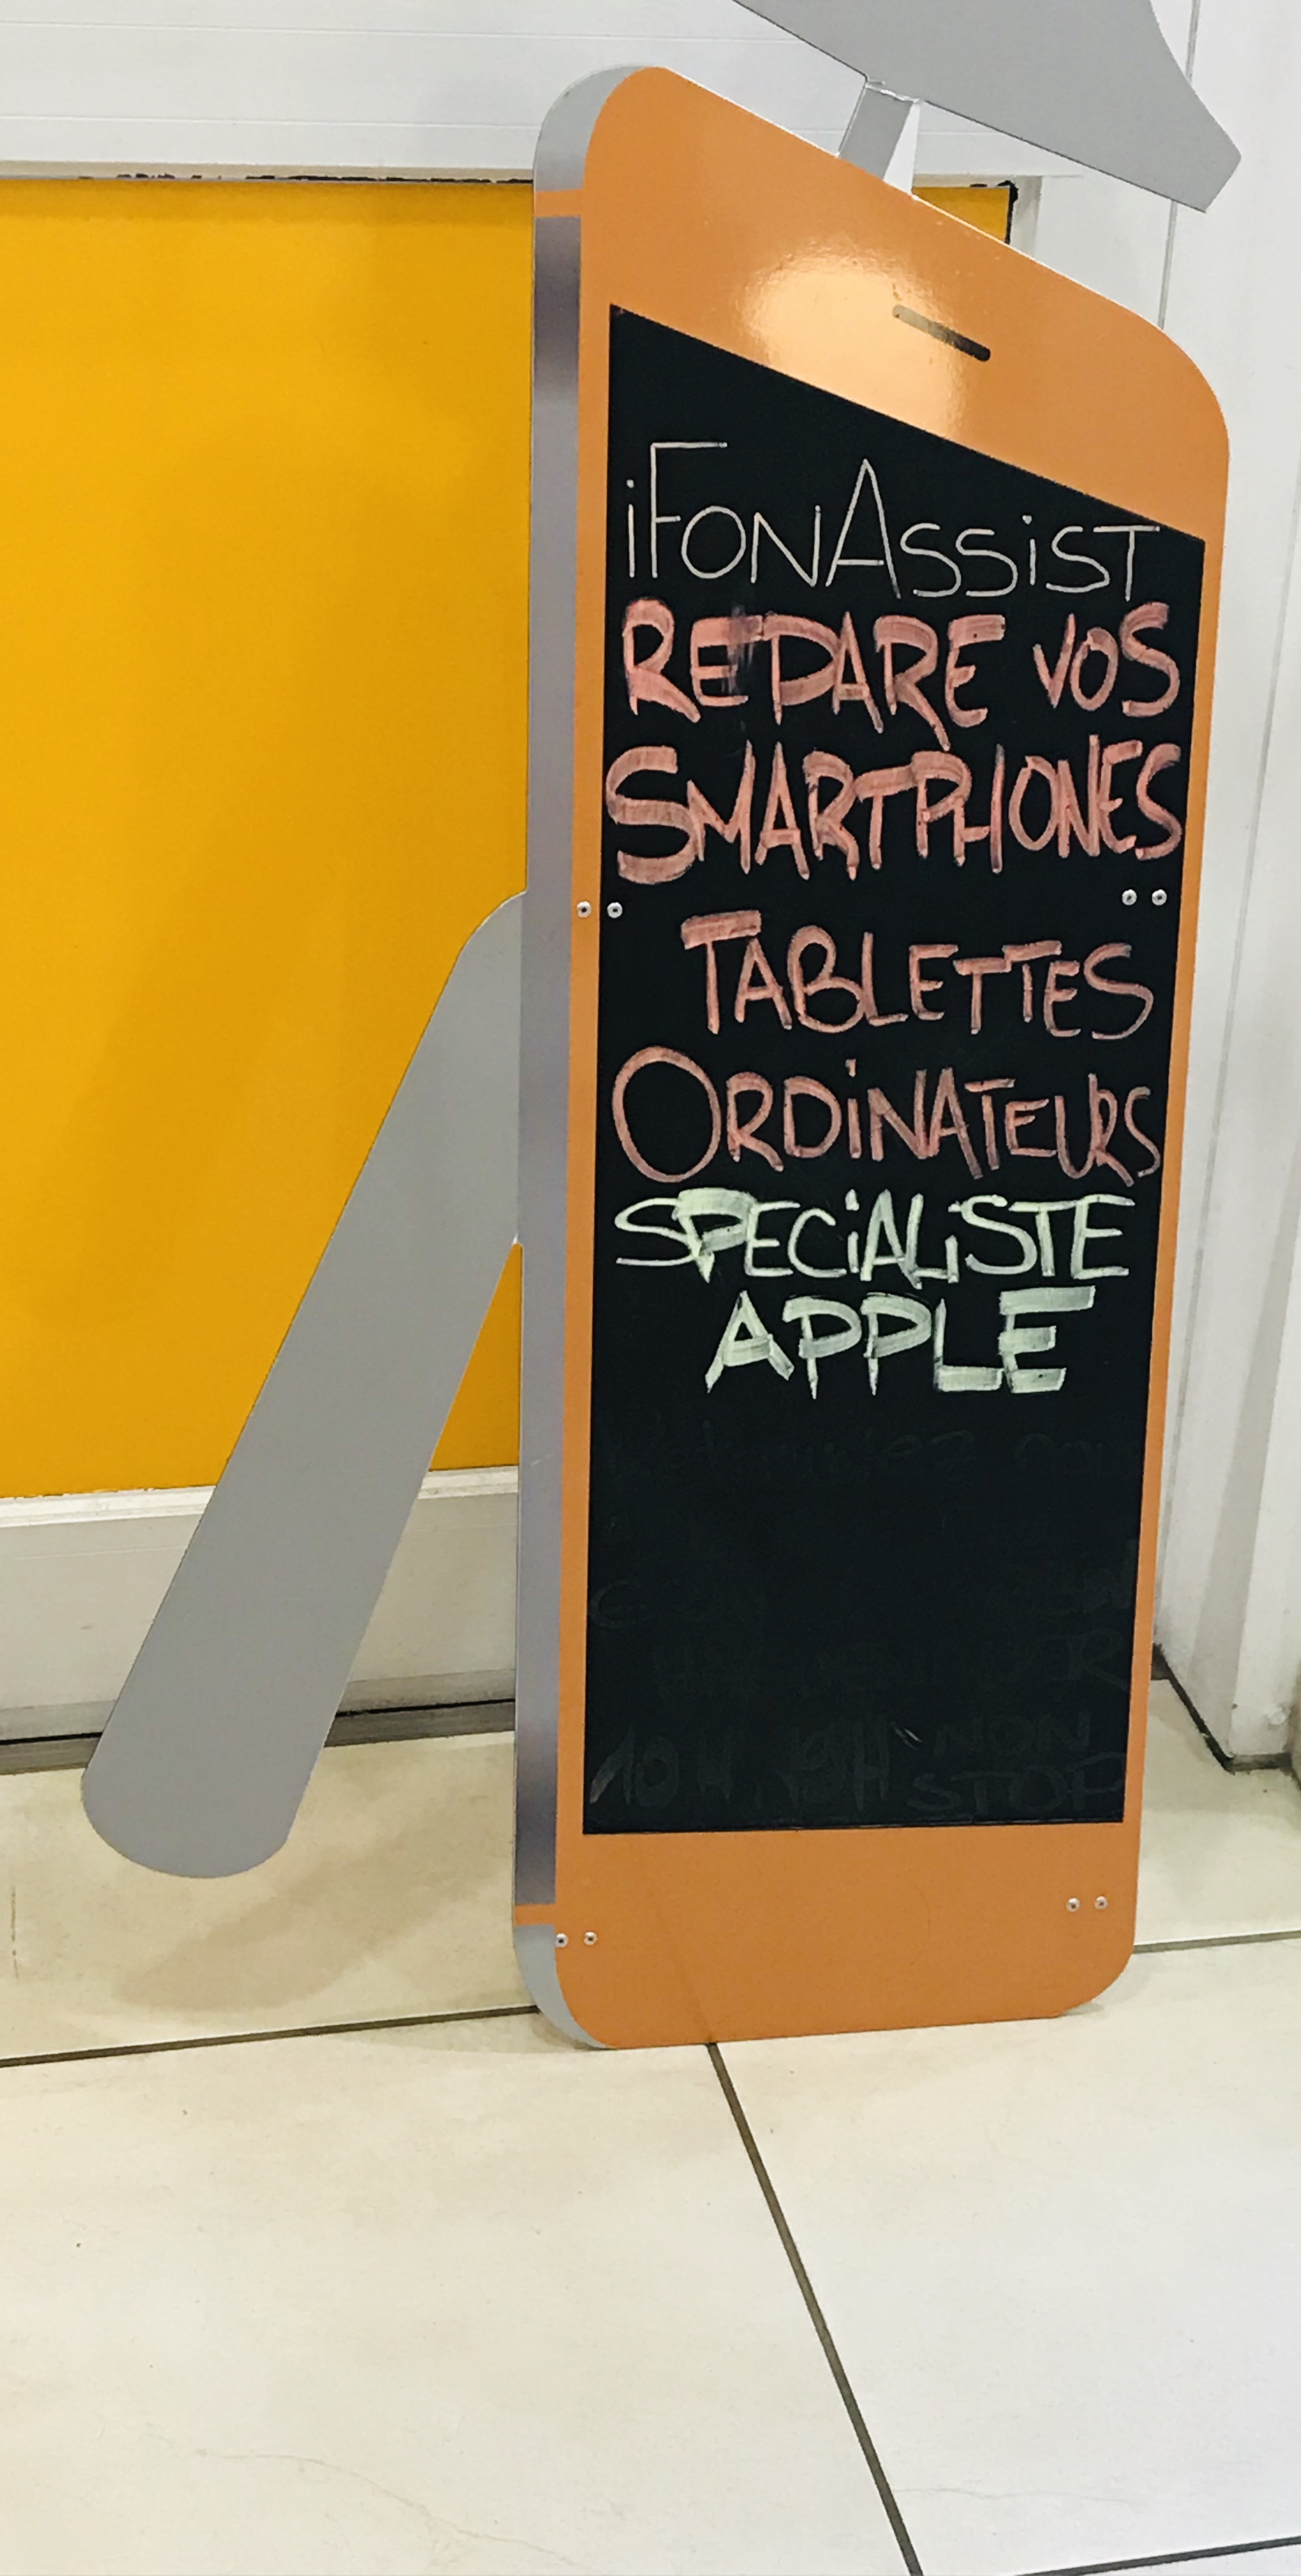 iFONASSiST
REPARE VOS
SMARTPHONES
TABLETTES
ORDiNATEURS
SPECiALiSTE
APPLE
10H 19H NON
STOP